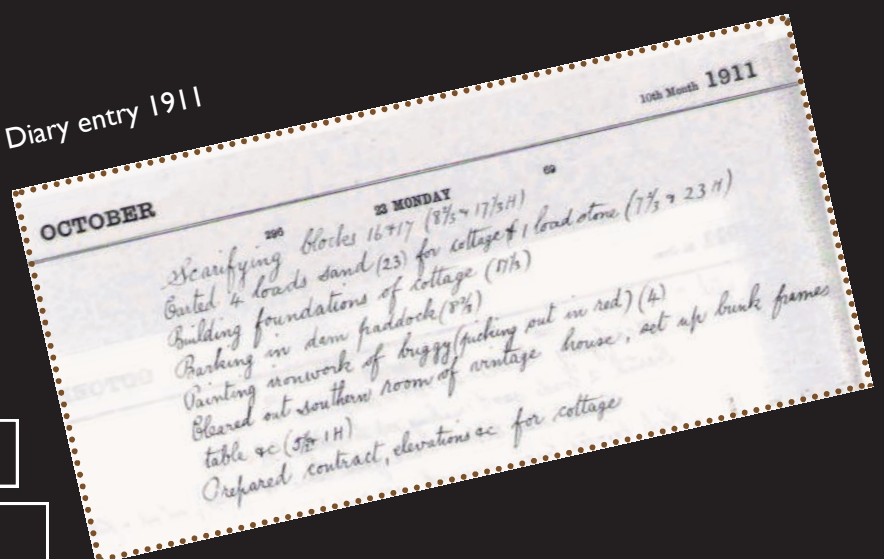 Diary entry 1911
10th Month 1911
OCTOBER
23 MONDAY
296 69
Scarifying blocks 16 & 17 (8⅔ & 17⅓ H)
Carted 4 loads sand (23) for cottage & 1 load stone (7⅔ & 23 H)
Building foundations of cottage (17⅓)
Barking in dam paddock (8⅔)
Painting ironwork of buggy (picking out in red) (4)
Cleared out southern room of vintage house, set up bunk frames
table &c ( 1 H)
Prepared contract, elevations &c for cottage